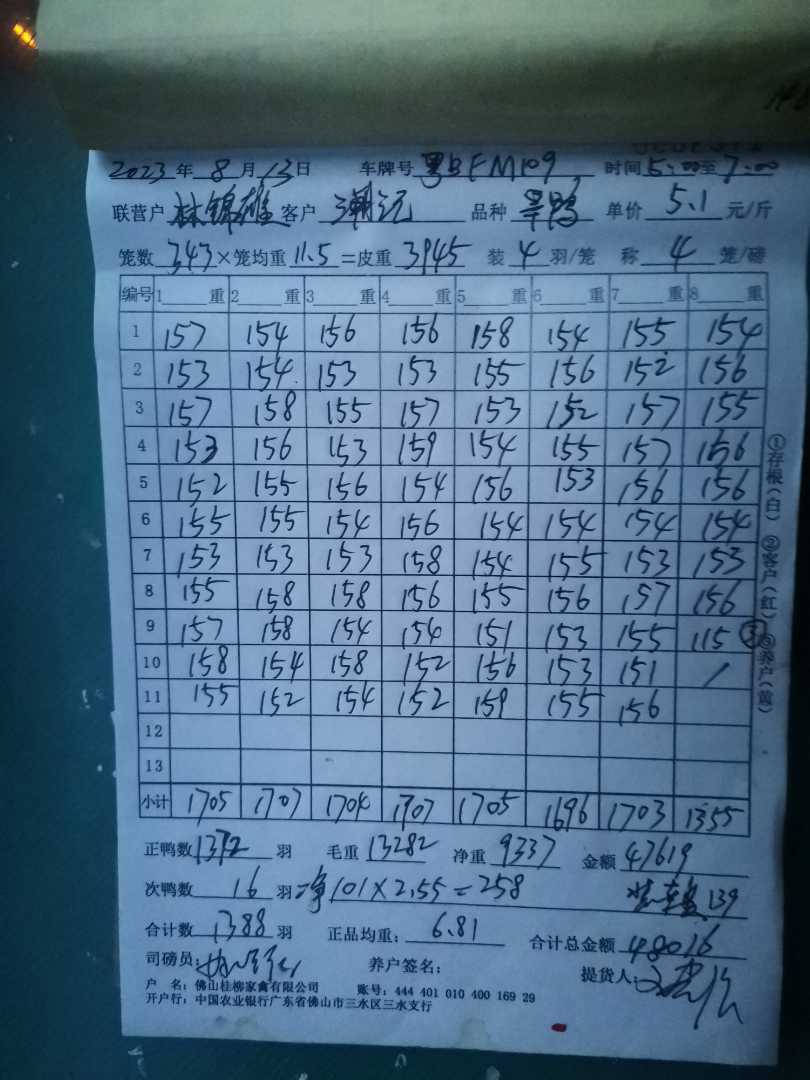 2023年8月13日 车牌号 粤BFM109 时间5:00至7:00
联营户 林锦雄 客户 潮记 品种 旱鸭 单价 5.1 元/斤
笼数 343 ×笼均重 11.5 =皮重 3945 装 4 羽/笼 称 4 笼/磅
编号 1 重 2 重 3 重 4 重 5 重 6 重 7 重 8 重
1 157 154 156 156 158 154 155 154
2 153 154 153 153 155 156 152 156
3 157 158 155 157 153 152 157 155
4 153 156 153 159 154 155 157 156
5 152 155 156 154 156 153 156 156
6 155 155 154 156 154 154 154 154
7 153 153 153 158 154 155 153 153
8 155 158 158 156 155 156 157 156
9 157 158 154 154 151 153 155 115 ③
10 158 154 158 152 156 153 151 /
11 155 152 154 152 159 155 156
12
13
小计 1705 1707 1704 1707 1705 1696 1703 1355
①存根(白) ②客户(红) ③养户(黄)
正鸭数 1372 羽 毛重 13282 净重 9337 金额 47619
次鸭数 16 羽 净101×2.55=258 139
合计数 1388 羽 正品均重: 6.81 合计总金额 48016
司磅员: 养户签名: 提货人:
户 名: 佛山桂柳家禽有限公司 账号: 444 401 010 400 169 29
开户行: 中国农业银行广东省佛山市三水区三水支行